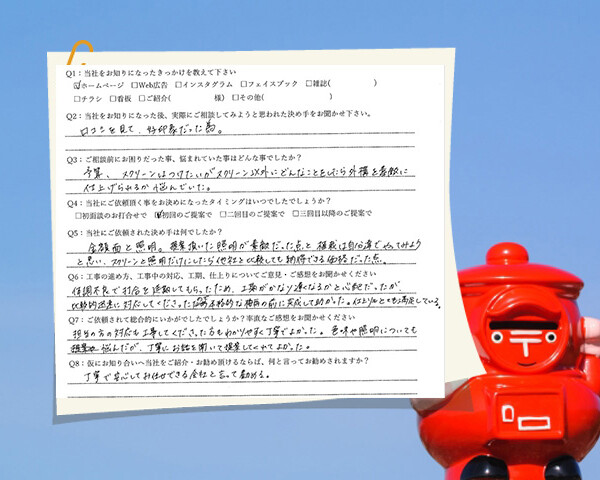 Q1：当社をお知りになったきっかけを教えて下さい
☑ホームページ □Web広告 □インスタグラム □フェイスブック □雑誌( )
□チラシ □看板 □ご紹介( 様) □その他( )
Q2：当社をお知りになった後、実際にご相談してみようと思われた決め手をお聞かせ下さい。
口コミを見て、好印象だった為。
Q3：ご相談前にお困りだった事、悩まれていた事はどんな事でしたか？
予算、スクリーンはつけたいがスクリーン以外にどんなことをしたら外構を素敵に
仕上げられるか悩んでいた。
Q4：当社にご依頼頂く事をお決めになったタイミングはいつでしたでしょうか？
□初面談のお打合せで ☑初回のご提案で □二回目のご提案で □三回目以降のご提案で
Q5：当社にご依頼された決め手は何でしたか？
金額面と照明。提案頂いた照明が素敵だった点と植栽は自分達でやってみよう
と思い、スクリーンと照明だけにしたら他社と比較しても納得できる価格だった点。
Q6：工事の進め方、工事中の対応、工期、仕上りについてご意見・ご感想をお聞かせください
体調不良で打合を延期してもらったため、工期がかなり遅くなるかと心配だったが、
比較的迅速に対応してくださった為本格的な梅雨の前に完成して助かった。仕上りもとても満足している。
Q7：ご依頼されて総合的にいかがでしたでしょうか？率直なご感想をお聞かせください
担当の方の対応も工事してくださった方もわかりやすく丁寧でよかった。色味や照明についても
悩んだが、丁寧にお話を聞いて提案してくれてよかった。
Q8：仮にお知り合いへ当社をご紹介・お勧め頂けるならば、何と言ってお勧めされますか？
丁寧で安心してお任せできる会社と言って勧める。
〒